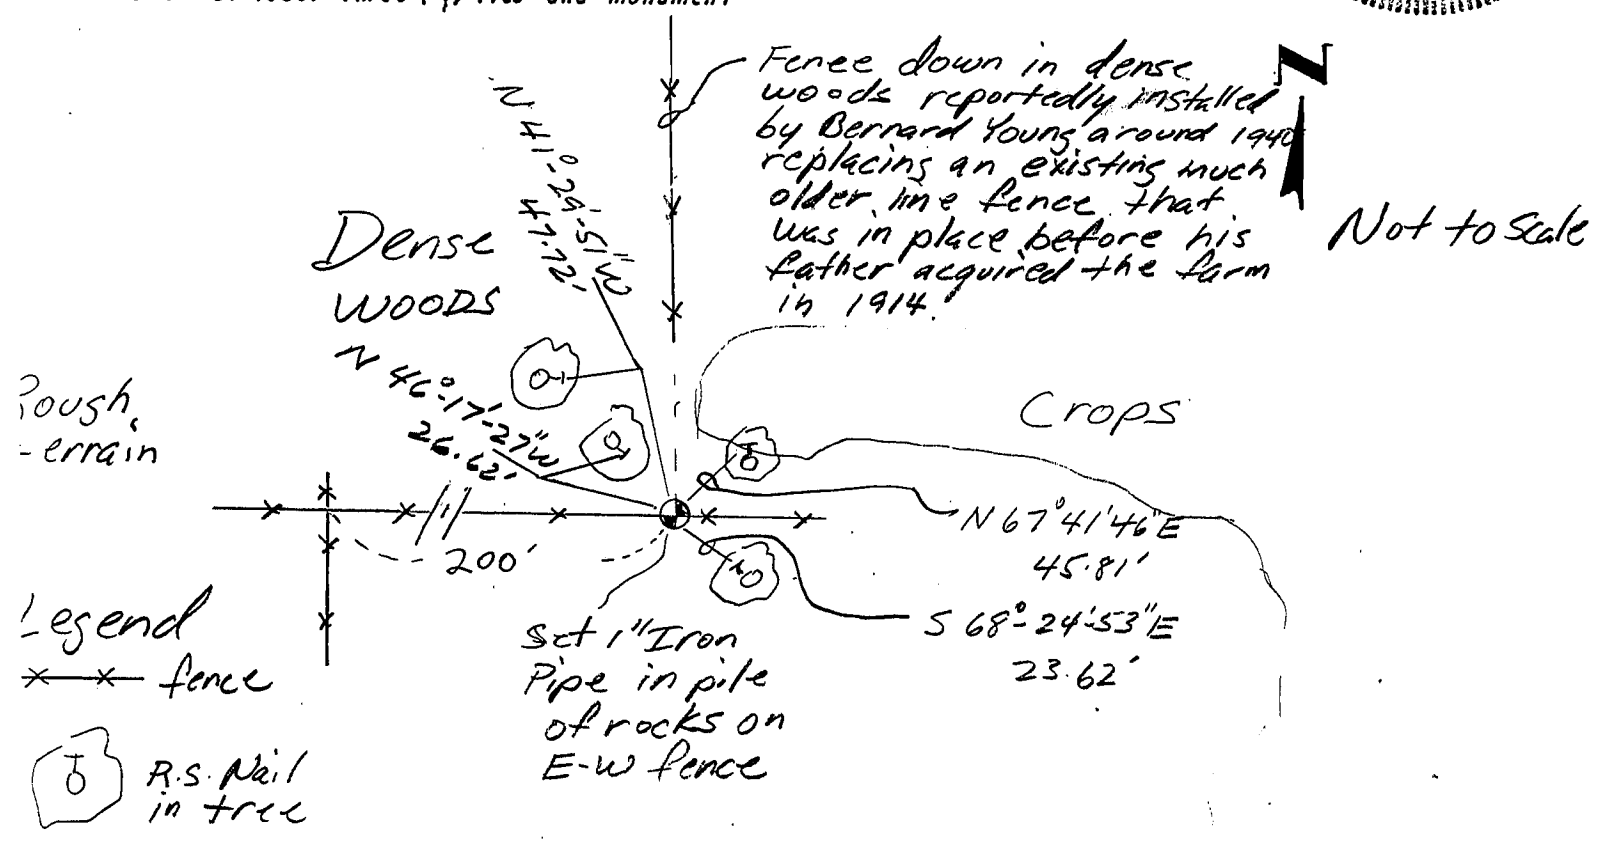 monument
Fence down in dense
woods reportedly installed
by Bernard Young around 1940
replacing an existing much
older line fence that
was in place before his
father acquired the farm
in 1914.
N
Not to Scale
Dense
WOODS
N 41°-29'-51"W
47.72'
N 46°-17'-27"W
26.62'
Crops
N 67°41'46"E
45.81'
S 68°-24'-53"E
23.62'
200'
Set 1" Iron
Pipe in pile
of rocks on
E-W fence
Legend
fence
R.S. Nail
in tree